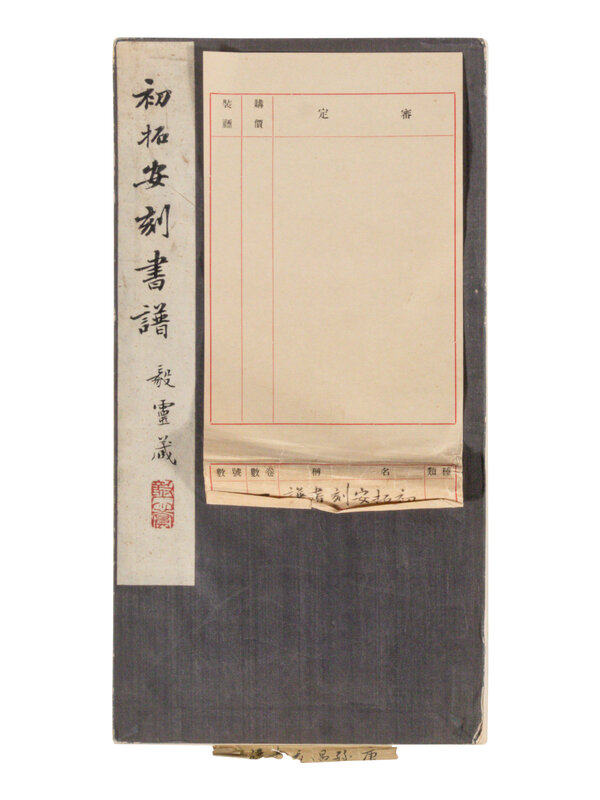 初拓安刻書譜
毅靈箴
審定
購價
裝璜
種類
名稱
卷數
號數
初拓安刻書譜